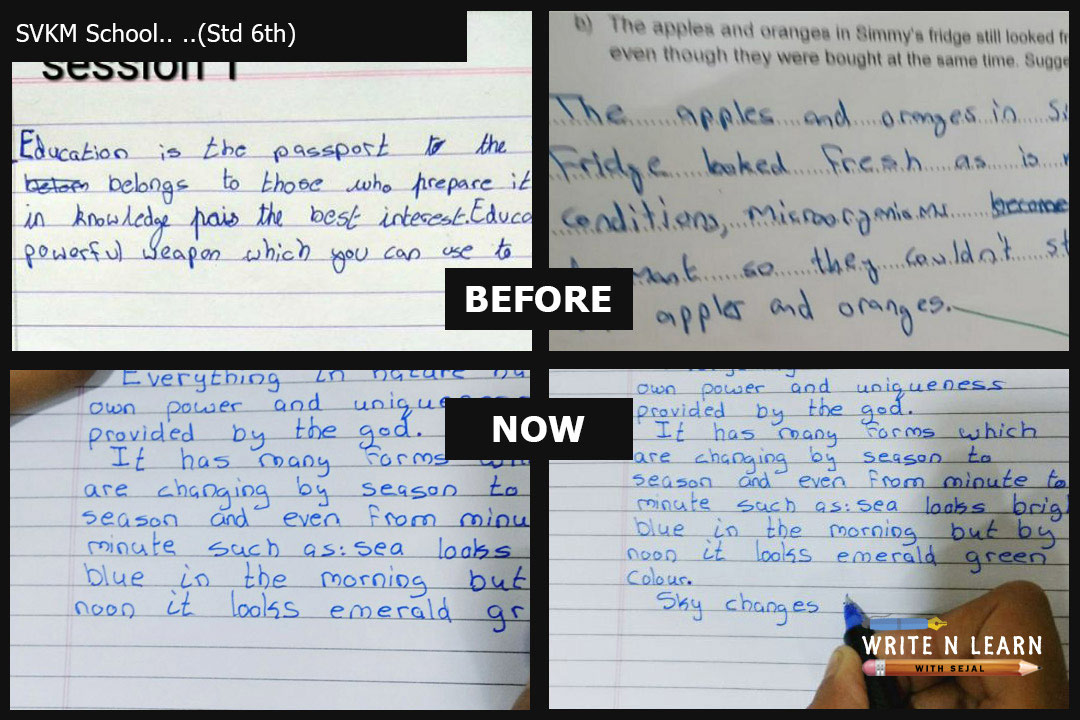 SVKM School.. ..(Std 6th)
session 1
Education is the passport to the
belongs to those who prepare it
in knowledge pais the best interest.Educa
powerful weapon which you can use to
b) The apples and oranges in Simmy's fridge still looked fr
even though they were bought at the same time. Sugge
The apples and oranges in Si
Fridge looked fresh as is
conditions, microorganisms become
so they couldn't st
apples and oranges.
BEFORE
NOW
Everything in nature ha
own power and unique
provided by the god.
It has many forms wh
are changing by season to
season and even from minu
minute such as: sea looks
blue in the morning but
noon it looks emerald gr
own power and uniqueness
provided by the god.
It has many forms which
are changing by season to
season and even from minute to
minute such as: sea looks brig
blue in the morning but by
noon it looks emerald green
colour.
Sky changes
WRITE N LEARN
WITH SEJAL